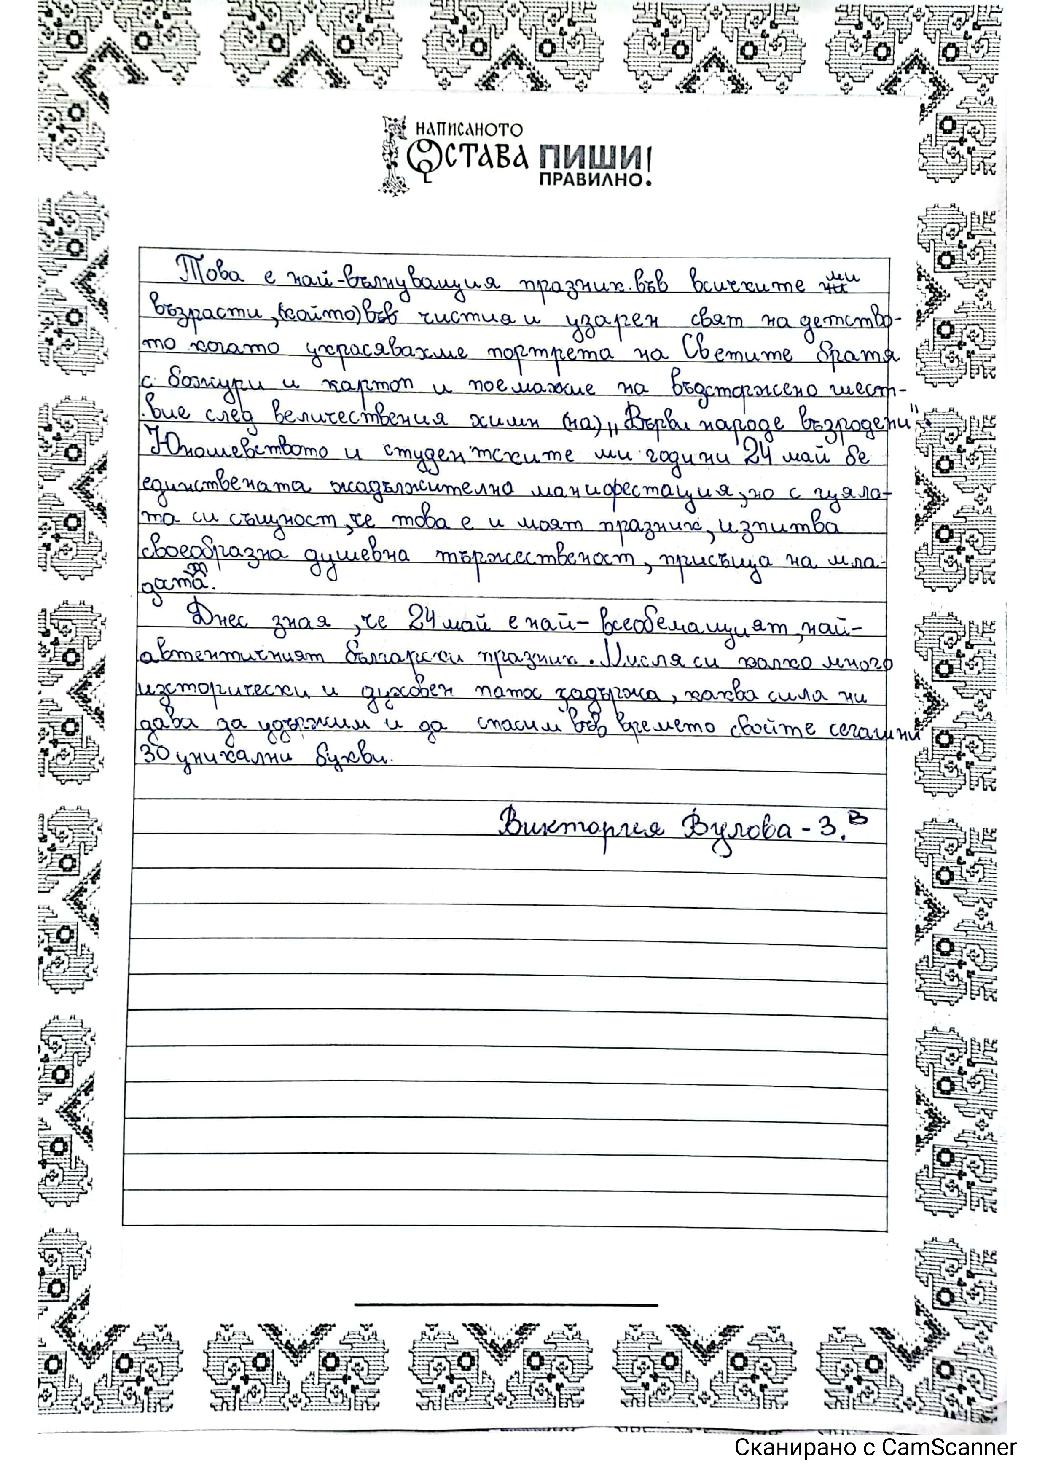 НАПИСАНОТО
ОСТАВА ПИШИ
ПРАВИЛНО!
Това е най-вълнуващия празник във всичките ми
възрасти, (който) във чистия и узарен свят на детство-
то когато украсявахме портрета на Светите братя
с божури и картоп и поемахме на въдсторжено шест-
вие след величествения химн (на) „Върви народе възродени"
Юношевството и студентските ми години 24 май бе
единствената задължително манифестация, но с цяла-
та си същност, че това е и моят празник, изпитва
своеобразна душевна тържественост, присъща на мла-
дата.
Днес зная, че 24 май е най-всеобемащият, най-
автентичният български празник. Мисля си колко много
исторически и духовен патос съдържа, каква сила ни
дава да удържим и да спасим във времето свойте сегашни
30 уникални букви.
Виктория Вулова - 3.в
Сканирано с CamScanner